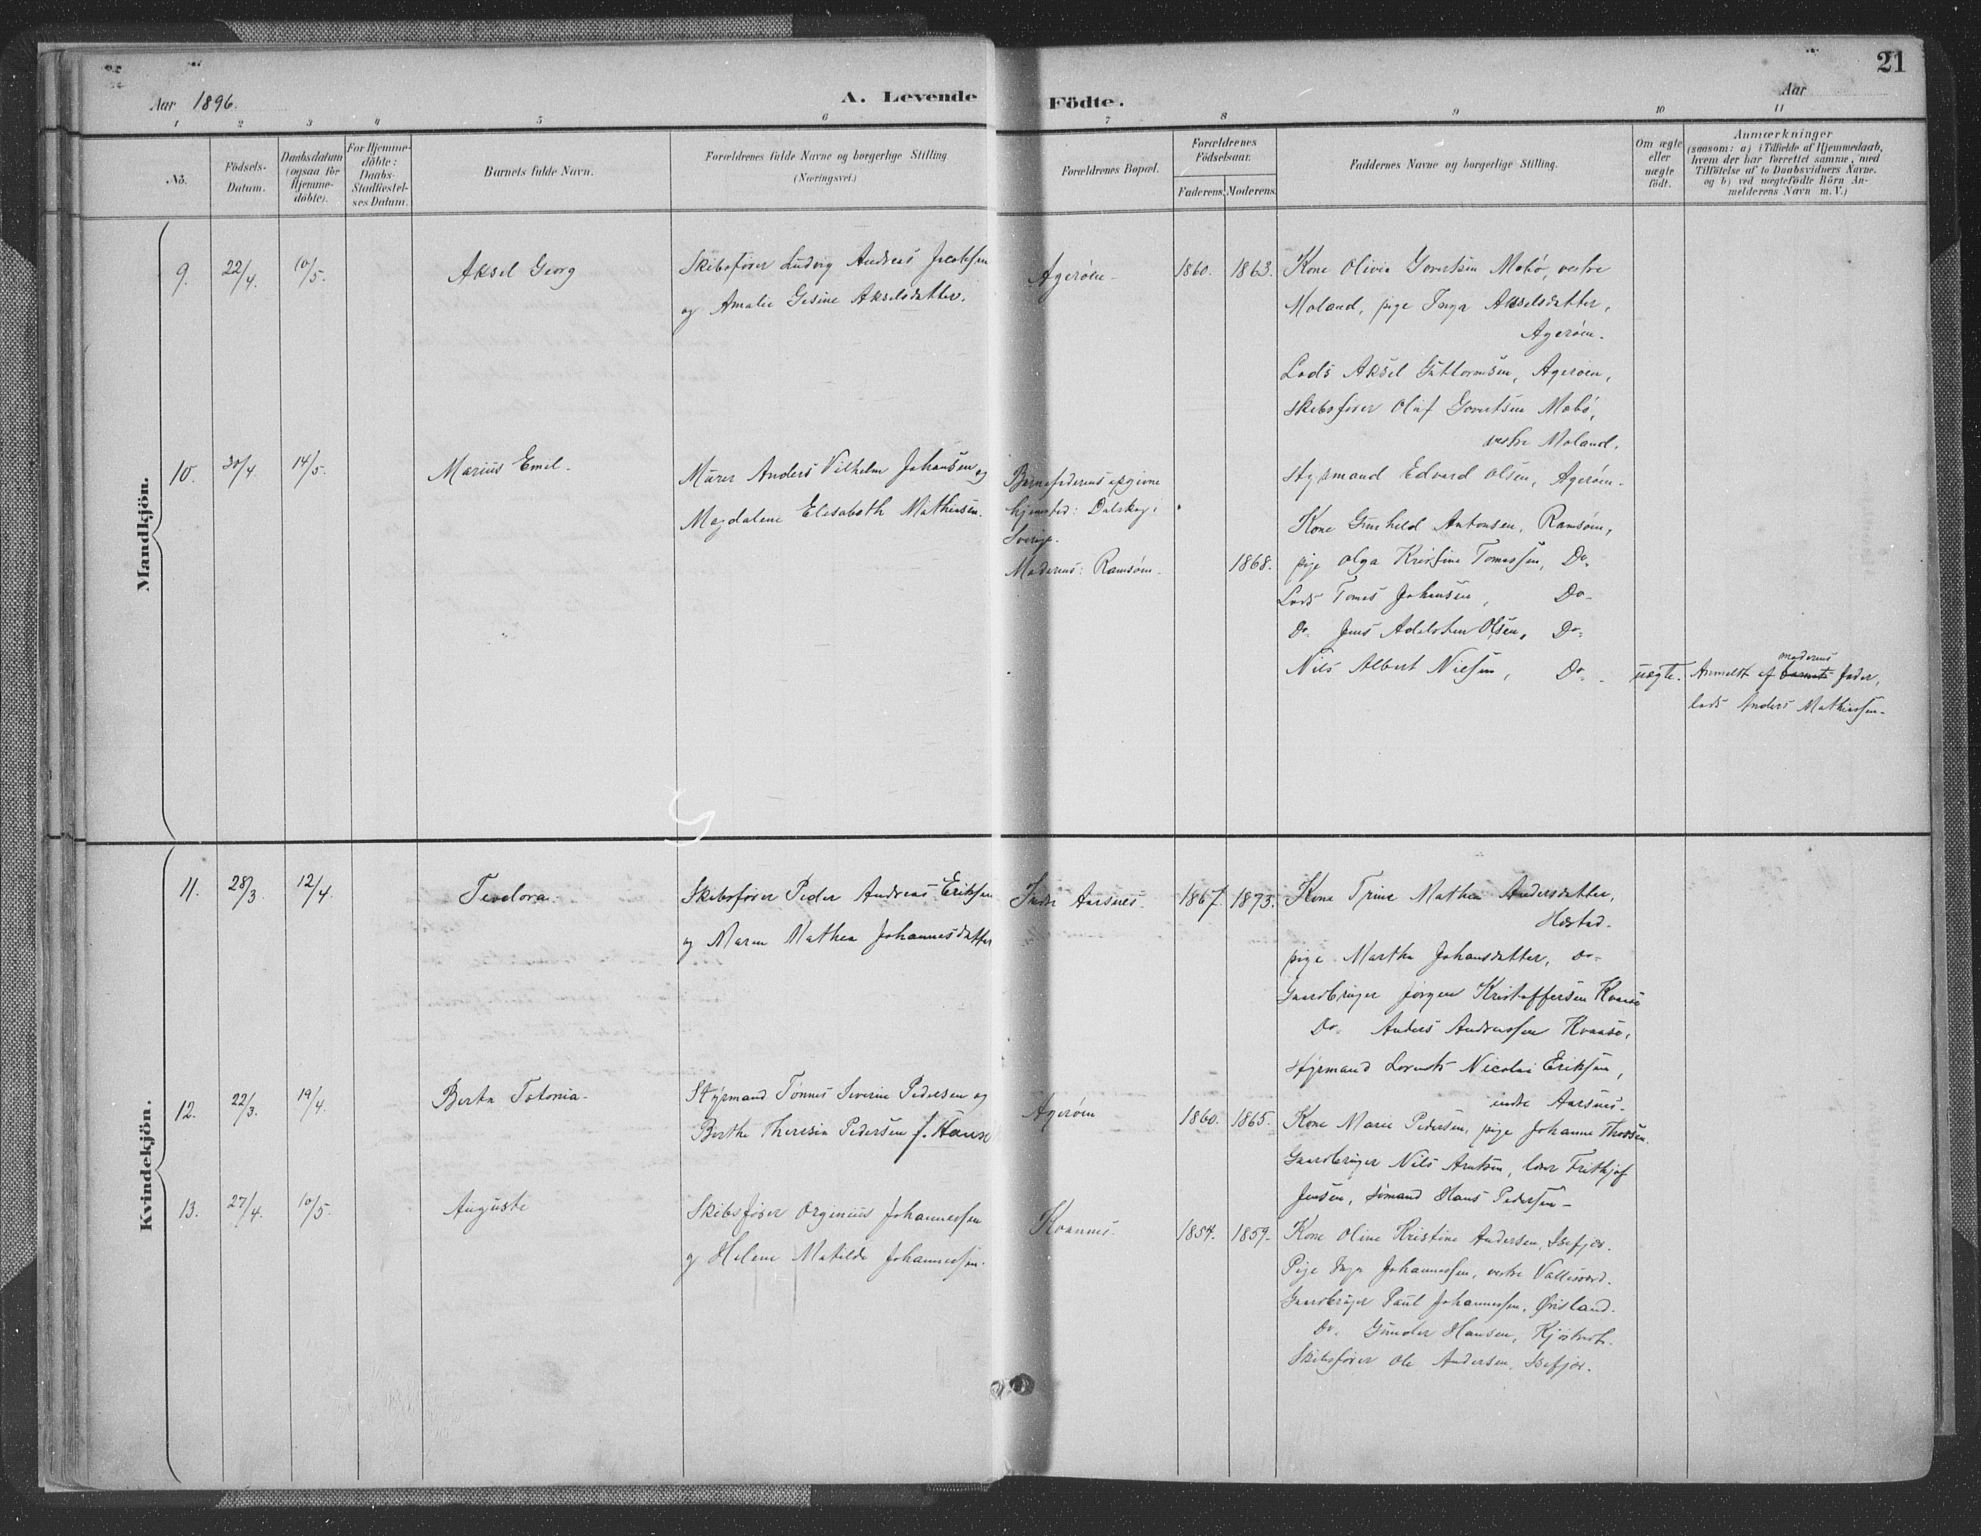 21
Aar 1896.
A. Levende Födte.
Aar
1 2 3 4 5 6 7 8 9 10 11
No.
Födsels-Datum.
Daabsdatum (ogsaa for Hjemmedöbte).
For Hjemmedöbte: Daabs-Stadfæstelses Datum.
Barnets fulde Navn.
Forældrenes fulde Navne og borgerlige Stilling (Næringsvei.)
Forældrenes Bopæl.
Forældrenes Födselsaar.
Faderens. Moderens.
Faddernes Navne og borgerlige Stilling.
Om ægte eller uægte födt.
Anmærkninger
(saasom: a) i Tilfælde af Hjemmedaab,
hvem der har forrettet samme, med
Tilföielse af to Daabsvidners Navne,
og b) ved uægtefödte Börn Anmelderens Navn m. V.)
Mandkjön.
9. 22/4. 10/5. Aksel Georg
Skibsfører Ludvig Andreas Jacobsen
og Amalie Gesine Akselsdatter.
Agerøen
1860. 1863.
Kone Olivia Govertsen Mebø, vestre
Moland, pige Inga Akselsdatter,
Agerøen.
Lods Aksel Guttormsen, Agerøen,
Skibsfører Oluf Govertsen Mebø,
vestre Moland.
Styrmand Edvard Olsen, Agerøen.
10. 30/4. 14/5. Marius Emil.
Murer Anders Vilhelm Johansen og
Magdalene Elisabeth Mathiesen.
Barnefaderens opgivne
hjemsted: Dalskog i
Sverige.
Moderens: Ramsøen.
1868.
Kone Gunhild Antonsen, Ramsøen,
pige Olga Kristine Tomassen, Do.
Lods Tomas Johansen, Do.
Do. Jens Adelsten Olsen, Do.
Nils Albert Nielsen, Do.
uægte.
Anmeldt af barnets moderens fader,
lods Anders Mathiesen.
Kvindekjön.
11. 28/3 12/4. Teodora.
Skibsfører Peder Andreas Eriksen
og Maren Mathea Johannesdatter
Indre Aarsnes.
1867. 1873.
Kone Trine Mathea Andersdatter,
Hæstad.
pige Martha Johansdatter, Do.
Gaardbruger Jørgen Kristoffersen Kvaase
Do. Anders Andreassen Kvaase,
Styrmand Lorents Nicolai Eriksen,
indre Aarsnes.
12. 22/3. 19/4. Berta Totonia.
Styrmand Tønnes Severin Pedersen og
Berthe Theresia Pedersen f. Hans
Agerøen
1860. 1865.
Kone Marie Pedersen, pige Johanne Thorsen.
Gaardbruger Nils Arntsen, Frithjof
Jensen, sømand Hans Pedersen
13. 27/4. 10/5. Auguste
Skibsfører Orginius Johannessen
og Helene Matilde Johannessen.
Kvannes.
1854. 1859.
Kone Oline Kristine Andersen, Isefjær.
Pige Inga Johannessen, vestre Vallesverd.
Gaardbruger Paul Johannessen, Øvisland.
Do. Gunder Hansen, Kjøstvedt.
Skibsfører Ole Andersen, Isefjær.